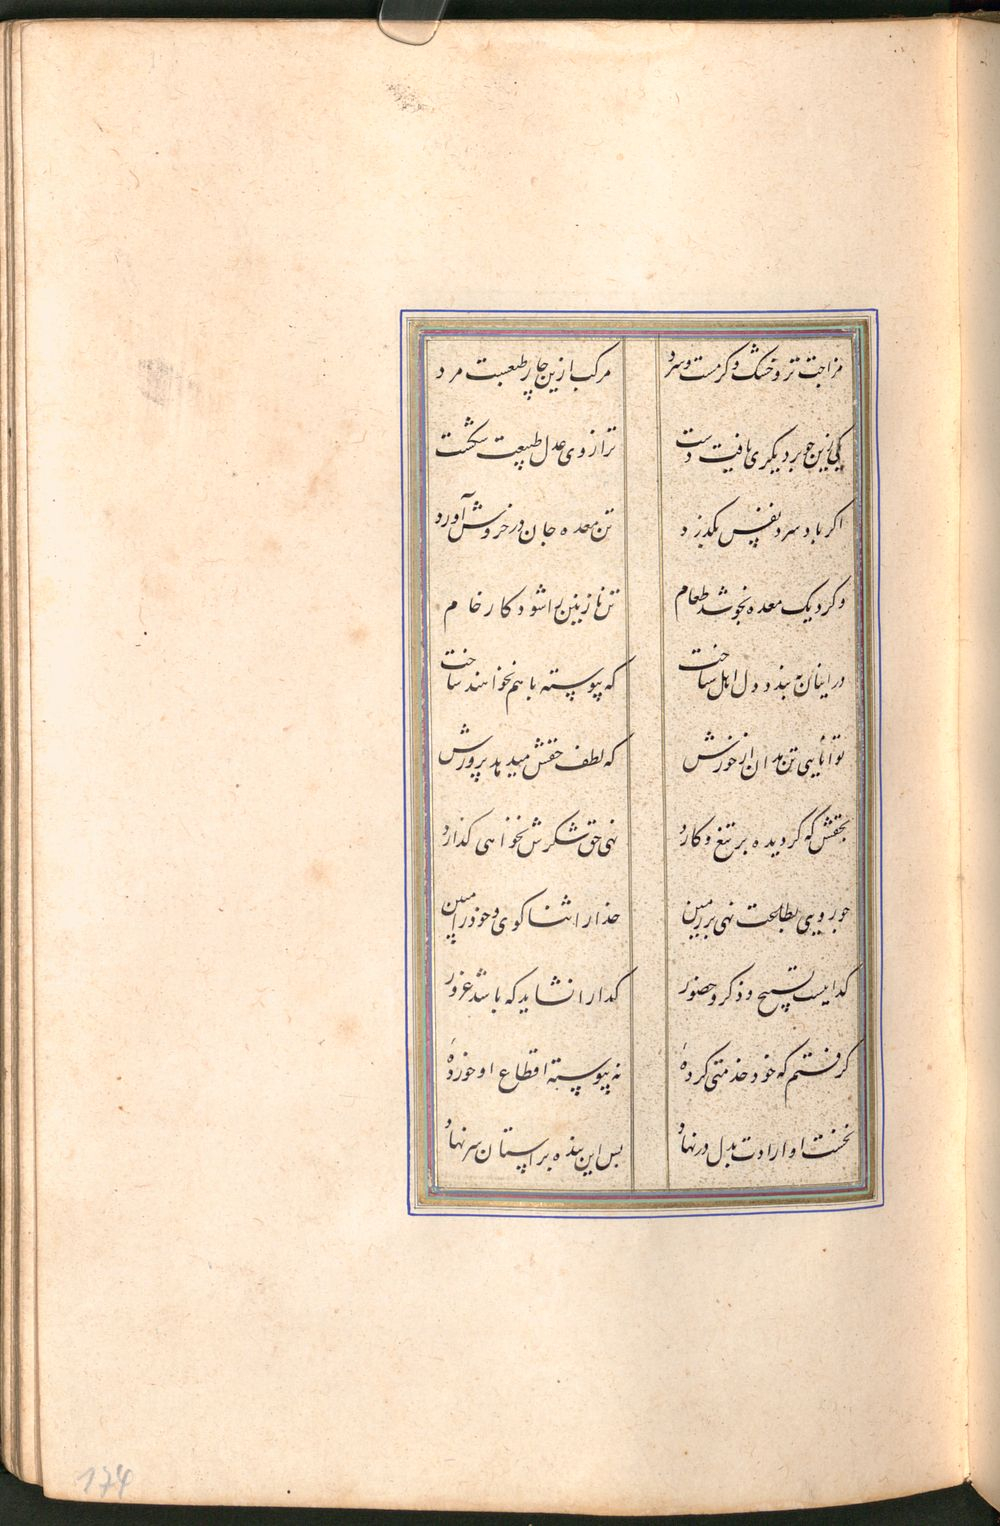 مزاجت تر و خشک و گرمست و سرد مرکب ازین چار طبعست مرد
یکی زین چو بر دیگری یافت دست ترازوی عدل طبیعت شکست
اگر باد سرد نفس نگذرد تن معده جان در خروش آورد
وگر دیگ معده نجوشد طعام تن نازنین را شود کار خام
در اینان نبندد دل اهل شناخت که پیوسته با هم نخواهند ساخت
توانایی تن مدان از خورش که لطف حقش میدهد پرورش
بحقش که گر دیده بر تیغ و کارد نهی حق شکرش نخواهی گذارد
چو رویی بطاعت نهی بر زمین خدا را ثنا گوی و خود را مبین
گداییست تسبیح و ذکر و حضور گدا را نشاید که باشد غرور
گرفتم که خود خدمتی کرده نه پیوسته اقطاع او خورده
نخست او ارادت بدل در نهاد پس این بنده بر آستان سر نهاد
174